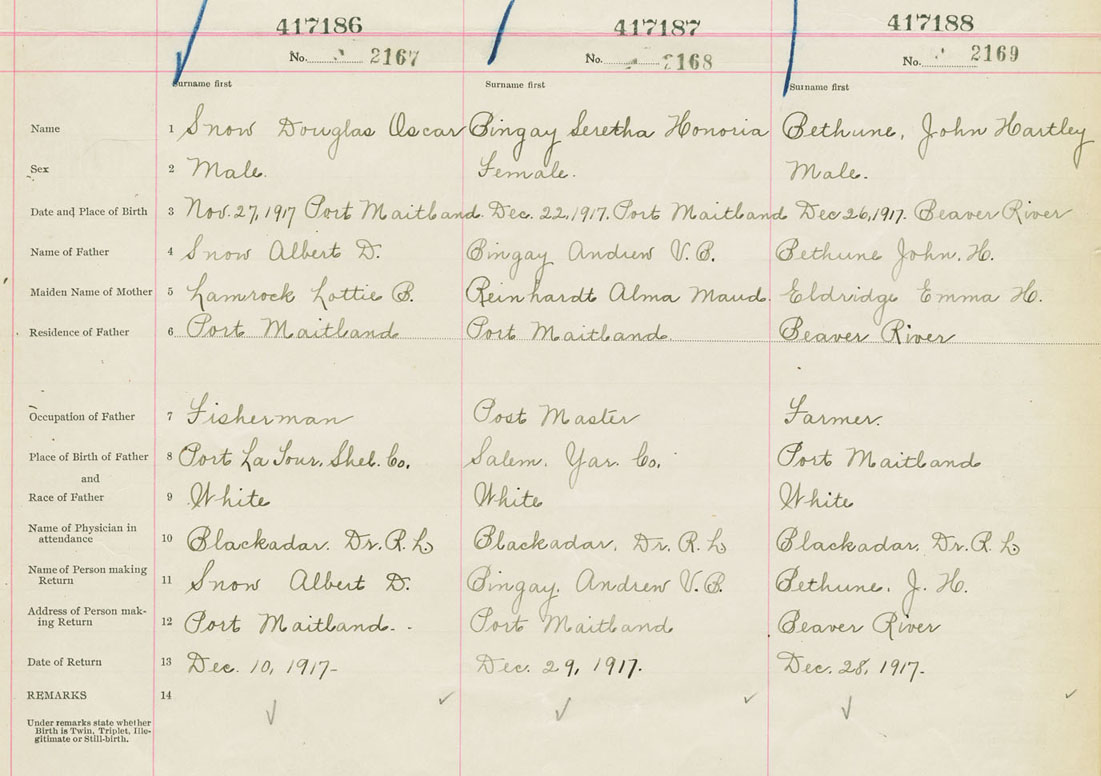 417186 417187 417188
No. 2167 No. 2168 No. 2169
Surname first Surname first Surname first
Name 1 Snow Douglas Oscar Bingay Seretha Honoria Bethune, John Hartley
Sex 2 Male. Female. Male.
Date and Place of Birth 3 Nov. 27, 1917 Port Maitland. Dec. 22, 1917. Port Maitland Dec 26, 1917. Beaver River
Name of Father 4 Snow Albert D. Bingay Andrew V. B. Bethune John. H.
Maiden Name of Mother 5 Lamrock Lottie B. Reinhardt Alma Maud. Eldridge Emma H.
Residence of Father 6 Port Maitland Port Maitland Beaver River
Occupation of Father 7 Fisherman Post Master Farmer.
Place of Birth of Father 8 Port La Tour. Shel. Co. Salem. Yar. Co. Port Maitland
and
Race of Father 9 White White White
Name of Physician in
attendance 10 Blackadar. Dr. R. L. Blackadar. Dr. R. L. Blackadar. Dr. R. L.
Name of Person making
Return 11 Snow Albert D. Bingay. Andrew V. B. Bethune. J. H.
Address of Person mak-
ing Return 12 Port Maitland. Port Maitland Beaver River
Date of Return 13 Dec. 10, 1917- Dec. 29, 1917. Dec. 28, 1917.
REMARKS 14
Under remarks state whether
Birth is Twin, Triplet, Ille-
gitimate or Still-birth.